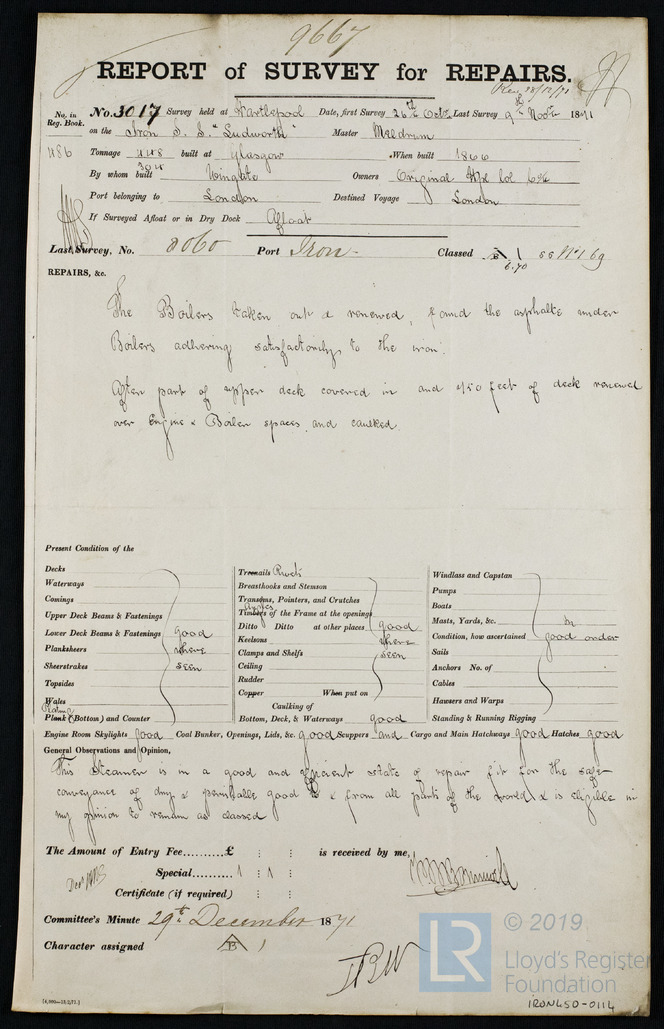 9667
REPORT of SURVEY for REPAIRS.
Rec 28/12/71
No. in Reg. Book.
No. 3017 Survey held at Hartlepool Date, first Survey 26th Octr Last Survey 9th Novr 1871
on the Iron S.S. "Ludworth" Master Meldrum
486
Tonnage 448 built at Glasgow When built 1866
304
By whom built Wingate Owners Original Hpl Col Co
Port belonging to London Destined Voyage London
If Surveyed Afloat or in Dry Dock Afloat
Last Survey, No. 8060 Port Iron Classed 1
6.70
REPAIRS, &c.
The Boilers taken out & renewed, found the asphalte under
Boilers adhering satisfactorily to the iron.
After part of upper deck covered in and 450 feet of deck renewed
over Engine & Boiler spaces and caulked.
Present Condition of the
Decks
Waterways
Comings
Upper Deck Beams & Fastenings
Lower Deck Beams & Fastenings good
Planksheers where
Sheerstrakes seen
Topsides
Wales
Plating
Plank (Bottom) and Counter
Treenails Rivets
Breasthooks and Stemson
Transoms, Pointers, and Crutches
Angles
Timbers of the Frame at the openings
Ditto Ditto at other places good
Keelsons where
Clamps and Shelfs seen
Ceiling
Rudder
Copper When put on
Caulking of
Bottom, Deck, & Waterways good
Windlass and Capstan
Pumps
Boats
Masts, Yards, &c. In
Condition, how ascertained good order
Sails
Anchors No. of
Cables
Hawsers and Warps
Standing & Running Rigging
Engine Room Skylights good Coal Bunker, Openings, Lids, &c. good Scuppers and Cargo and Main Hatchways good Hatches good
General Observations and Opinion,
This Steamer is in a good and efficient state of repair fit for the safe
conveyance of dry & perishable good to & from all parts of the world & is eligible in
my opinion to remain as classed
The Amount of Entry Fee..........£ : : is received by me,
Special.......... 1 : 1 :
Certificate (if required) : :
Committee's Minute 29th December 1871
Character assigned B 1
[4,000—13/2/71.]
LR
© 2019
Lloyd's Register
Foundation
IRON450-0114